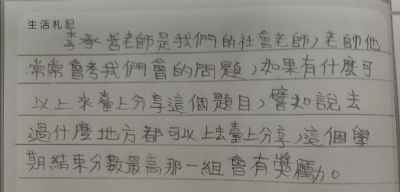 生活札記
李承營老師是我們的社會老師,老師他
常常會考我們會的問題,如果有什麼可
以上來臺上分享這個題目,譬如說去
過什麼地方都可以上去臺上分享,這個學
期結束分數最高那一組會有獎勵。